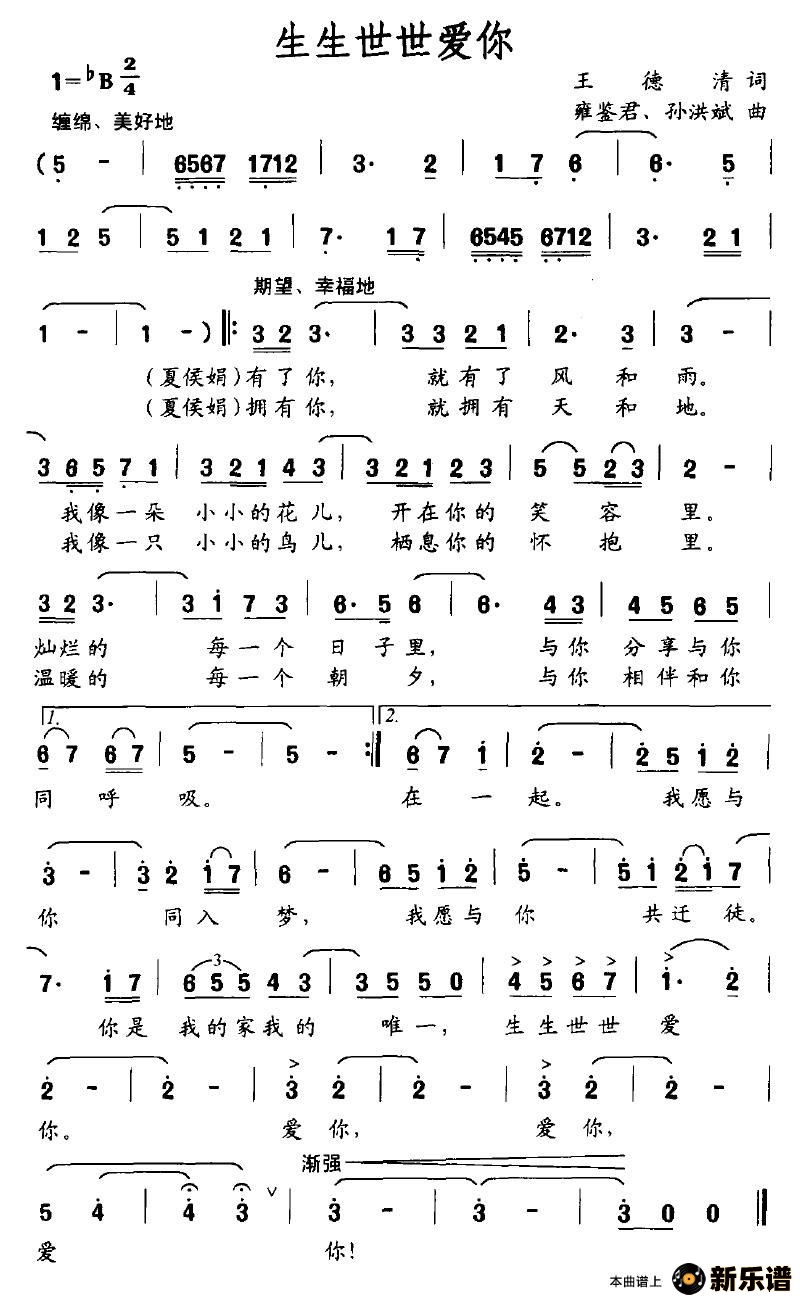 生生世世爱你
1=♭B 2/4
王德清词
缠绵、美好地
雍鉴君、孙洪斌 曲
(5 - | 6567 1712 | 3· 2 | 1 7 6 | 6· 5 |
1 2 5 | 5 1 2 1 | 7· 1 7 | 6545 6712 | 3· 2 1 |
期望、幸福地
1 - | 1 - ) ‖: 3 2 3· | 3 3 2 1 | 2· 3 | 3 - |
(夏侯娟)有了你, 就有了风和雨。
(夏侯娟)拥有你, 就拥有天和地。
3 6 5 7 1 | 3 2 1 4 3 | 3 2 1 2 3 | 5 5 2 3 | 2 - |
我像一朵小小的花儿, 开在你的笑容里。
我像一只小小的鸟儿, 栖息你的怀抱里。
3 2 3· | 3 1 7 3 | 6· 5 6 | 6· 4 3 | 4 5 6 5 |
灿烂的 每一个日子里, 与你分享与你
温暖的 每一个朝夕, 与你相伴和你
1. 2.
6 7 6 7 | 5 - | 5 - :‖ 6 7 1 | 2 - | 2 5 1 2 |
同呼吸。 在一起。 我愿与
3 - | 3 2 1 7 | 6 - | 6 5 1 2 | 5 - | 5 1 2 1 7 |
你 同入梦, 我愿与你 共迁徒。
7· 1 7 | 3 6 5 5 4 3 | 3 5 5 0 | 4 5 6 7 | 1· 2 |
你是我的家我的唯一, 生生世世爱
2 - | 2 - | 3 2 | 2 - | 3 2 | 2 - |
你。 爱你, 爱你,
渐强
5 4 | 4 3 ∨ | 3 - | 3 - | 3 0 0 0 ‖
爱 你!
本曲谱上 新乐谱